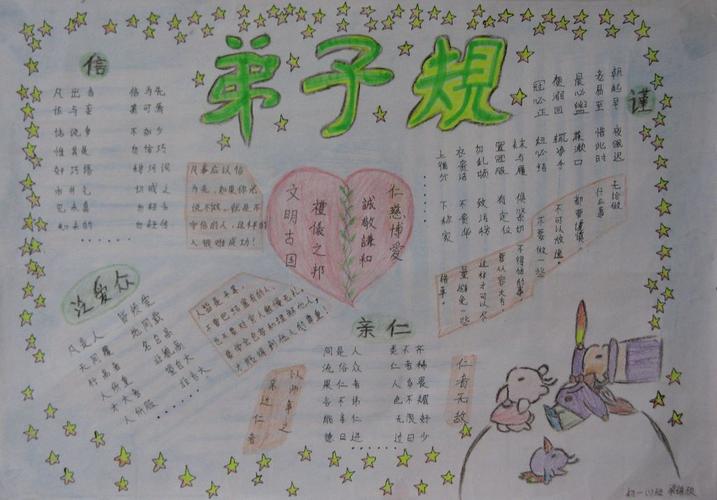 弟子規
信
凡出言 信为先
诈与妄 奚可焉
话说多 不如少
惟其是 勿佞巧
奸巧语 秽污词
市井气 切戒之
见未真 勿轻言
知未的 勿轻传
凡事应以信
为先，如果你老
说不做，就是不
守信的人，这样的
人很难成功！
仁慈博爱
誠敬謙和
禮儀之邦
文明古国
谨
朝起早 夜眠迟
老易至 惜此时
晨必盥 兼漱口
便溺回 辄净手
冠必正 纽必结
袜与履 俱紧切
置冠服 有定位
勿乱顿 致污秽
衣贵洁 不贵华
上循分 下称家
无论做
什么事
都要谨慎，
不可以放过。
不要做一些
不得体的事。
泛爱众
凡是人 皆须爱
天同覆 地同载
行高者 名自高
人所重 非貌高
才大者 望自大
人所服 非言大
亲仁
同是人 类不齐
流俗众 仁者稀
果仁者 人多畏
言不讳 色不媚
能亲仁 无限好
德日进 过日少
仁者无敌
以师事之
亲近仁者